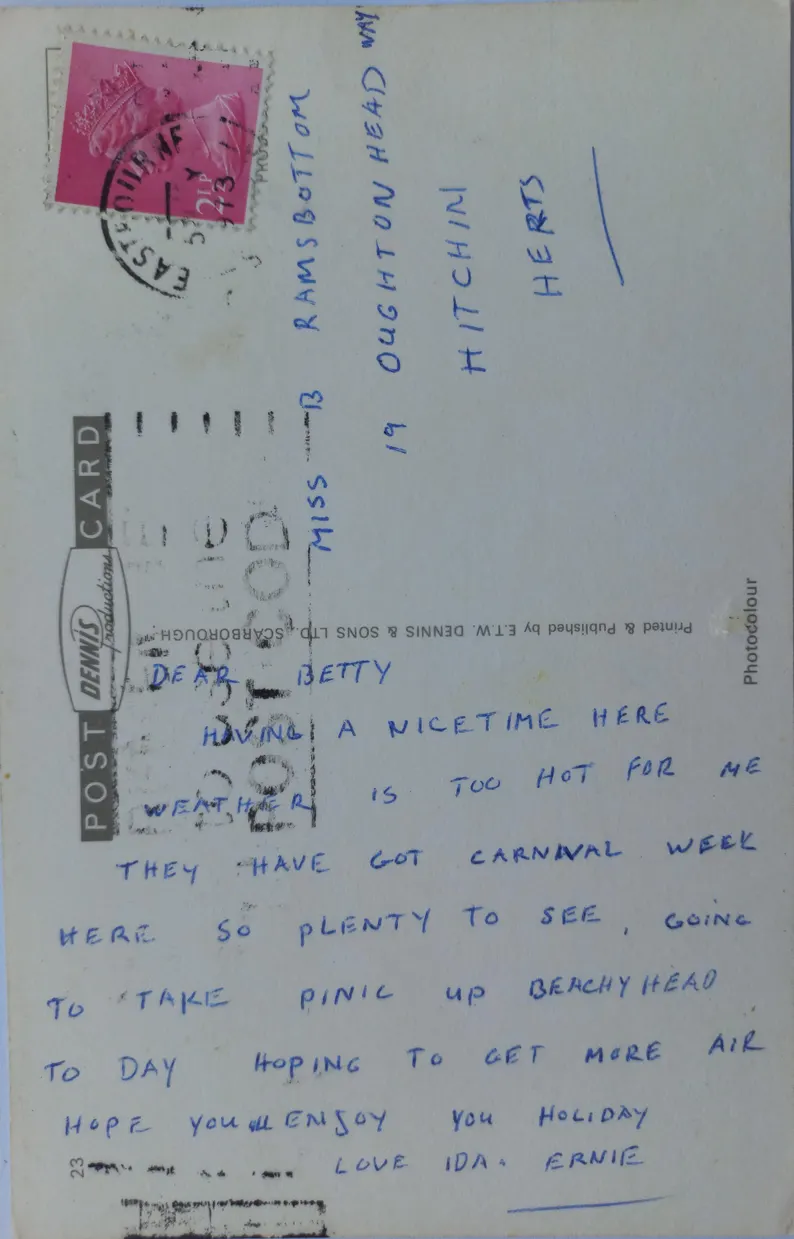 POST DENNIS productions CARD
DEAR BETTY
HAVING A NICE TIME HERE
WEATHER IS TOO HOT FOR ME
THEY HAVE GOT CARNIVAL WEEK
HERE SO PLENTY TO SEE, GOING
TO TAKE PINIC UP BEACHY HEAD
TO DAY HOPING TO GET MORE AIR
HOPE YOU ENJOY YOU HOLIDAY
LOVE IDA. ERNIE
MISS B RAMSBOTTOM
19 OUGHTON HEAD WAY
HITCHIN
HERTS
Printed & Published by E.T.W. DENNIS & SONS LTD. SCARBOROUGH
Photocolour
23
2½P
EASTBOURNE
POST CODE